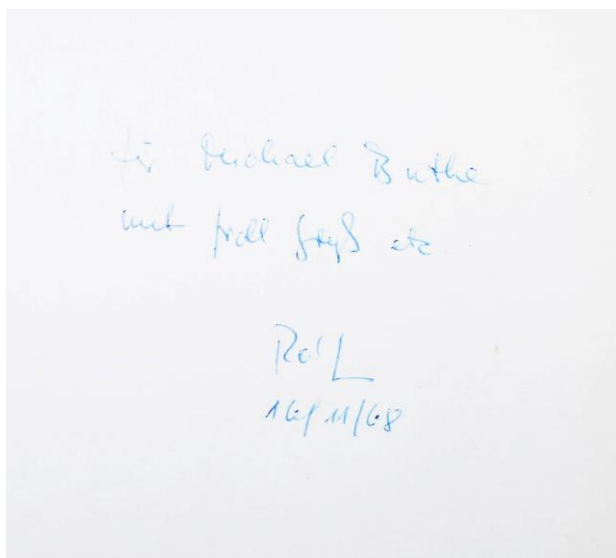 für Michael Buthe
mit Gruß etc
Rolf
16/11/68